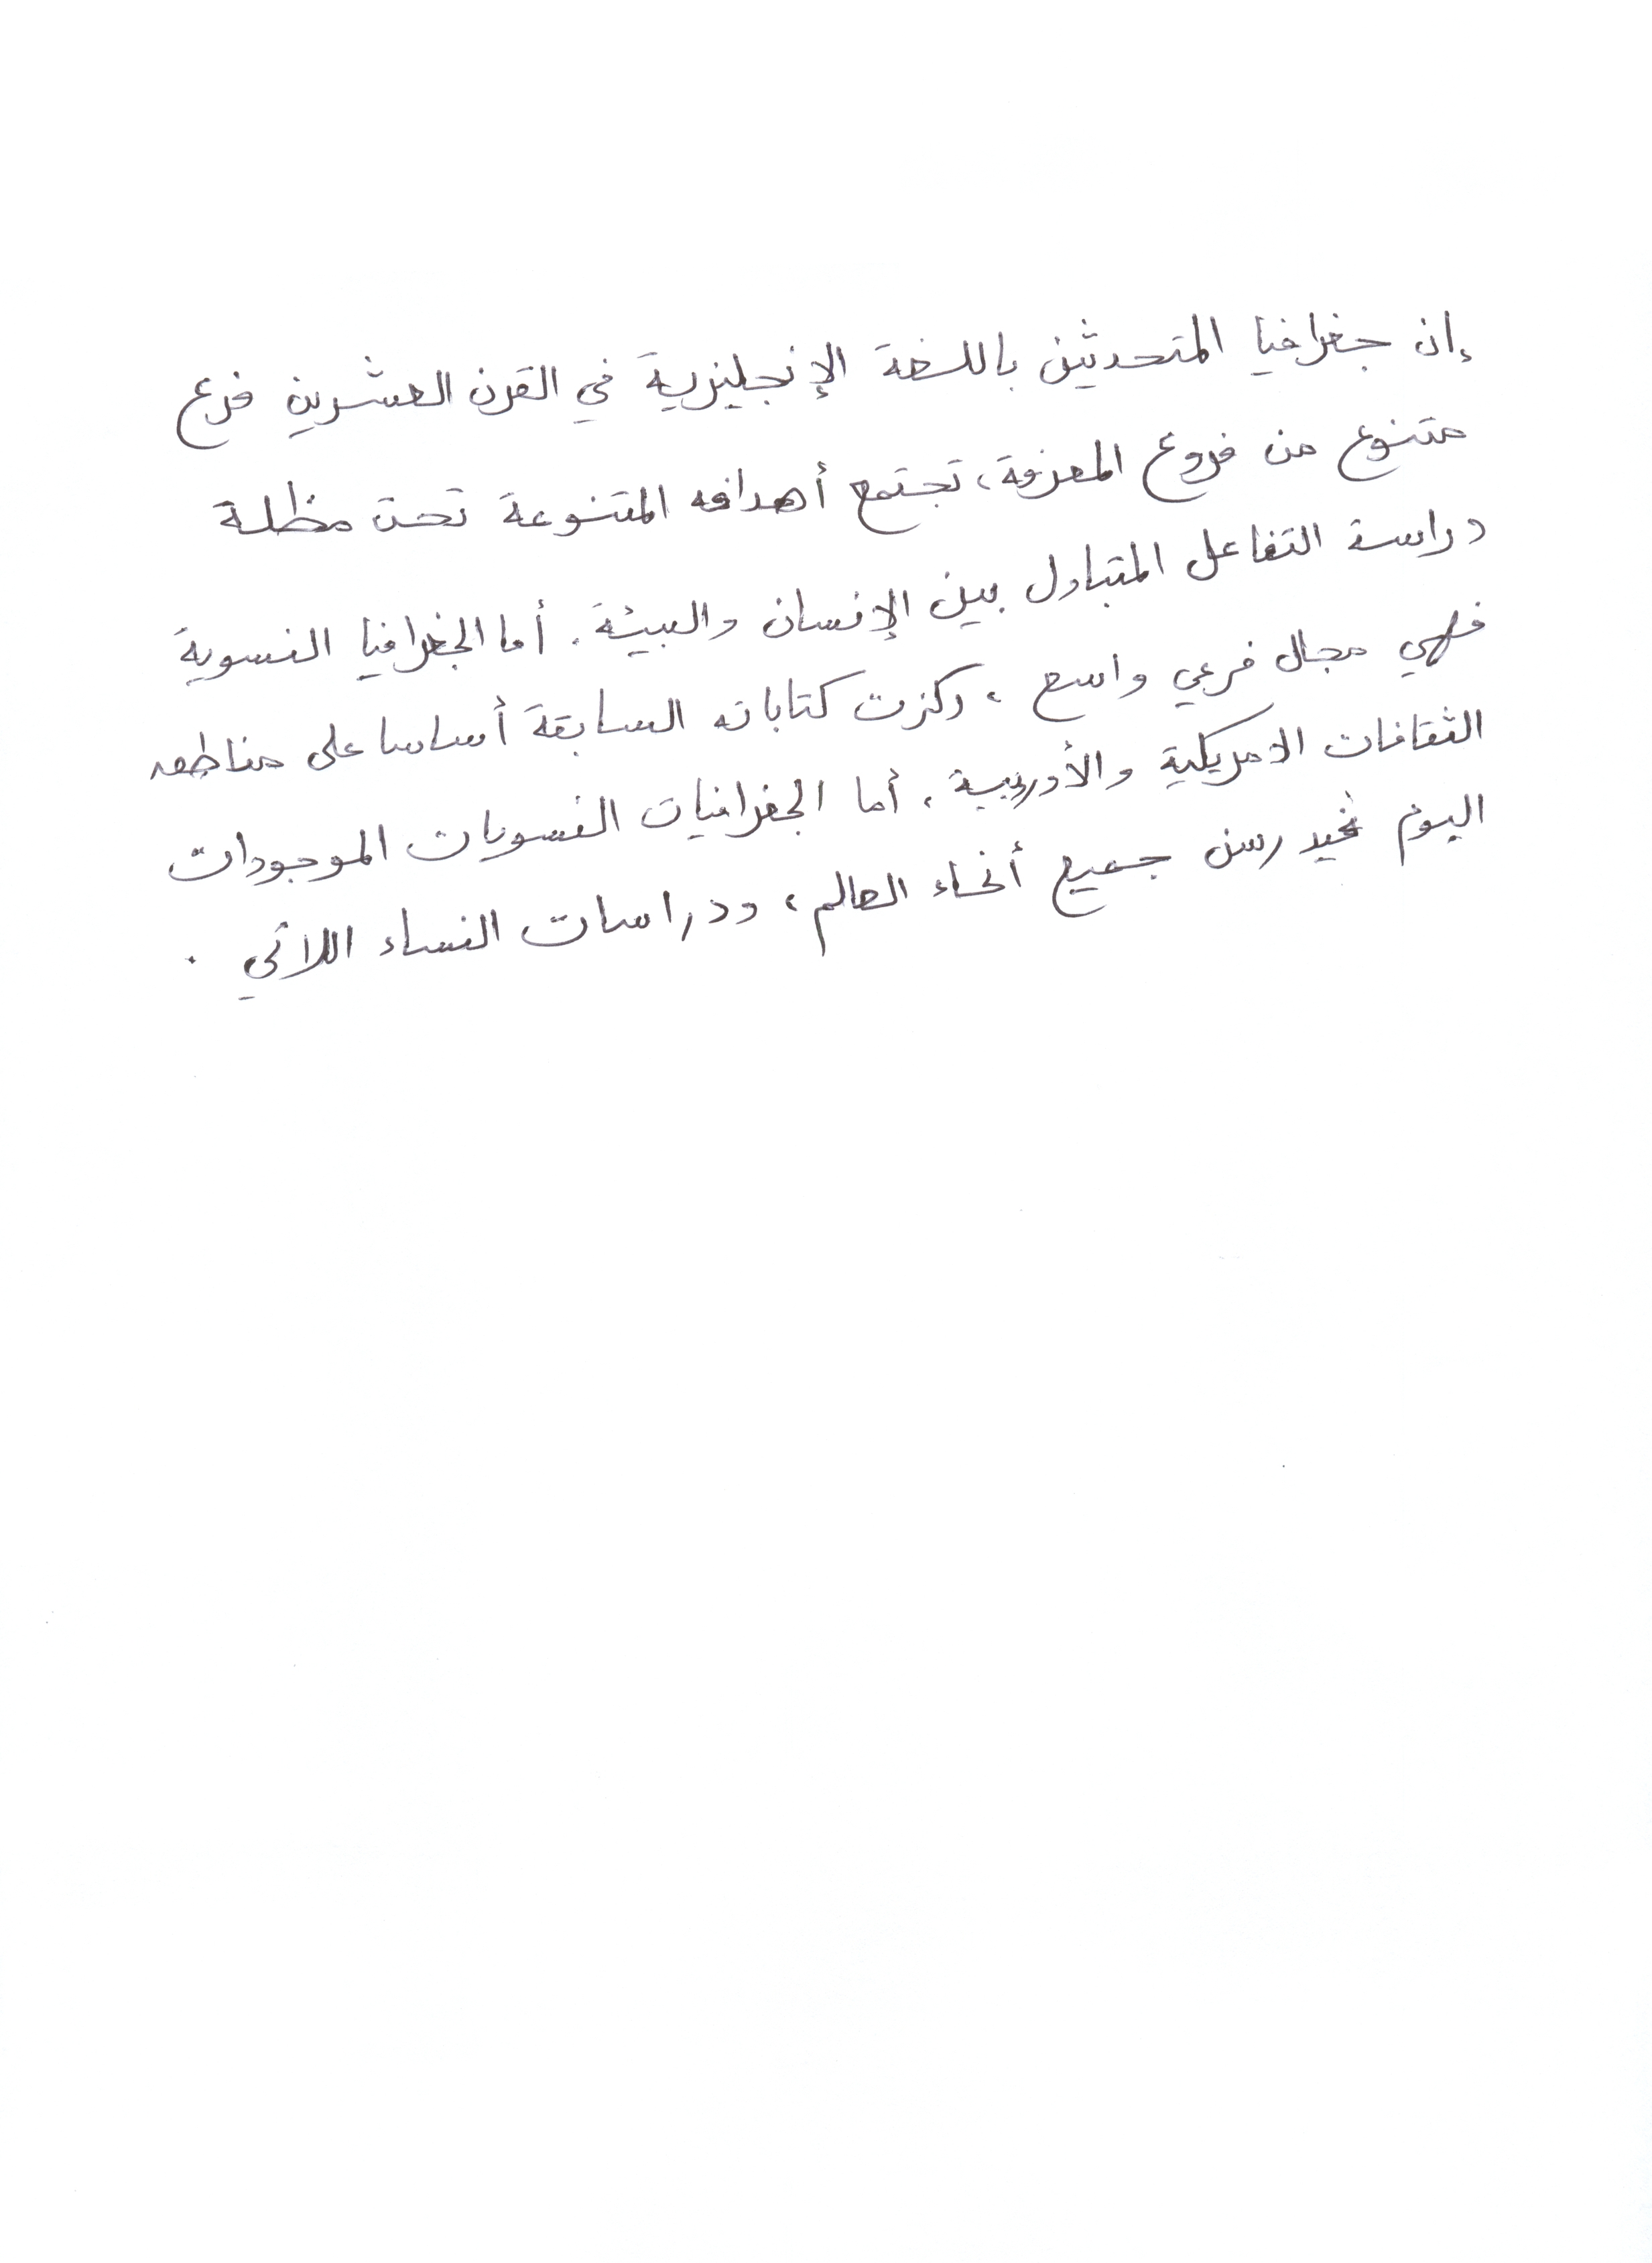 إن جغرافيا المتحدثين باللغة الإنجليزية في القرن العشرين فرع
متنوع من فروع المعرفة، تجتمع أهدافه المتنوعة تحت مظلة
دراسة التفاعل المتبادل بين الإنسان والبيئة. أما الجغرافيا النسوية
فهي مجال فرعي واسع، ركزت كتاباته السابقة أساسا على مناطق
الثقافات الامريكية والأوربية. أما الجغرافيات النسويات الموجودات
اليوم فيدرسن جميع أنحاء العالم، ودراسات النساء اللاتي.